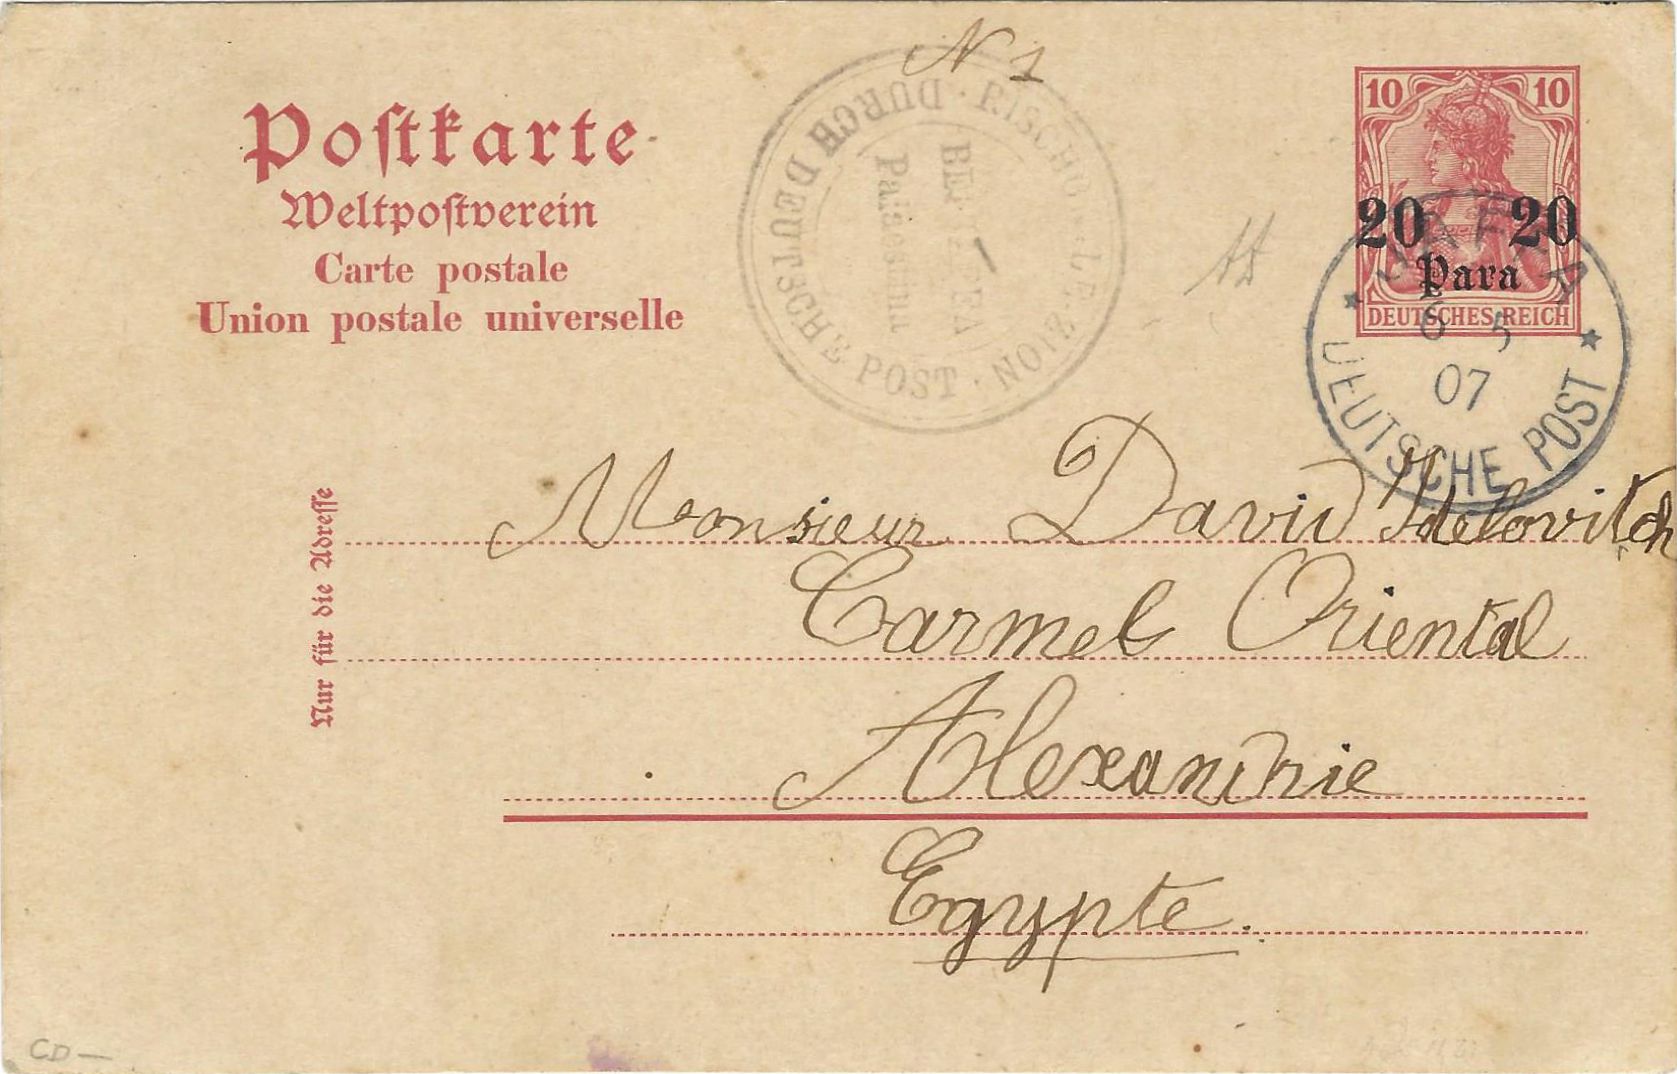 N 1
Postkarte
Weltpostverein
Carte postale
Union postale universelle
10 10
20 20
Para
DEUTSCHES REICH
JAFFA
6 5
07
DEUTSCHE POST
RISCHON-LE-ZION · DURCH DEUTSCHE POST
Palaestina
Nur für die Adresse
Monsieur David Idelovitch
Carmel Oriental
Alexandrie
Egypte.
CD —